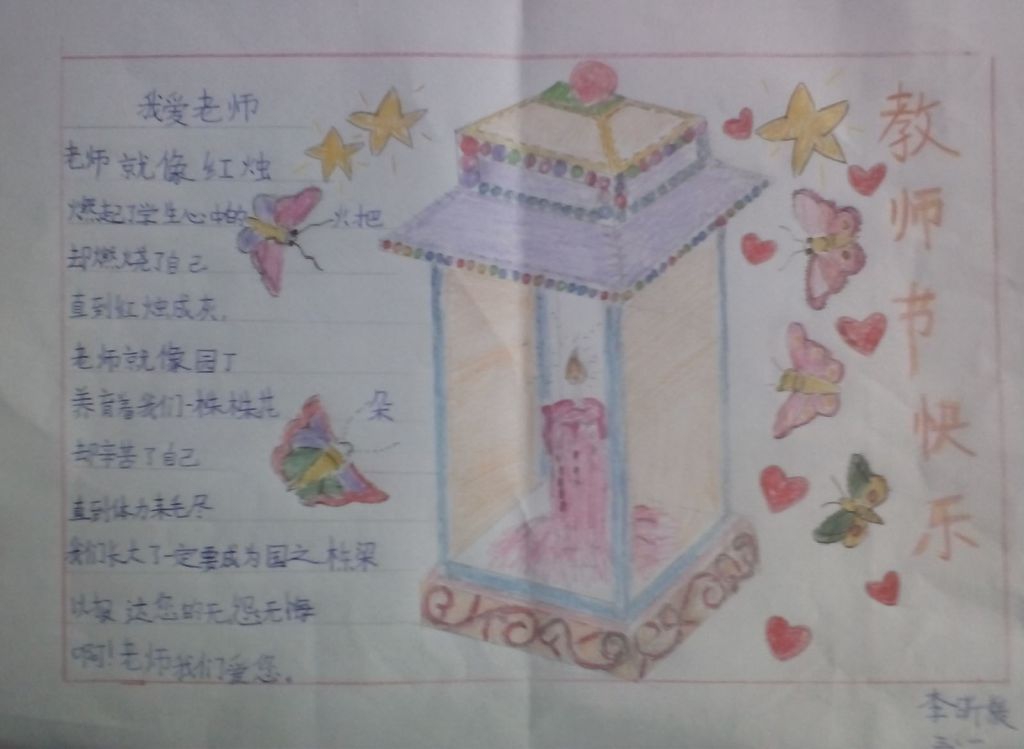 我爱老师
老师就像红烛
燃起了学生心中的火把
却燃烧了自己
直到红烛成灰.
老师就像园丁
养育着我们一株株花朵
却辛苦了自己
直到体力耗尽
我们长大了一定要成为国之栋梁
以报达您的无怨无悔
啊!老师我们爱您.
教师节快乐
李